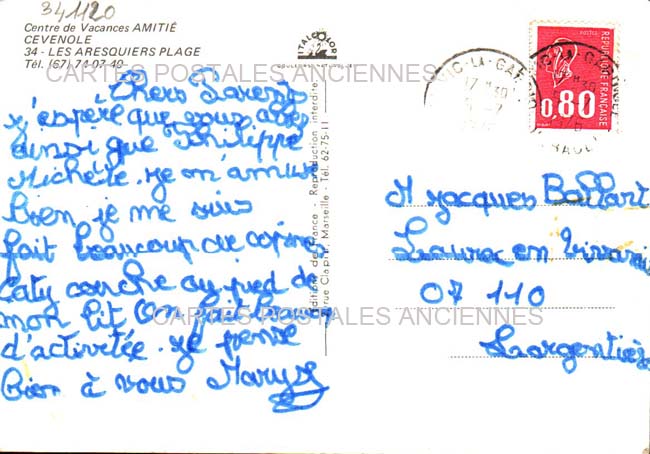 341120
Centre de Vacances AMITIÉ
CEVENOLE
34 - LES ARESQUIERS PLAGE
Tél. (67) 74-07-49
CARTES POSTALES ANCIENNES
Chers Parents
j'espère que vous allez
ainsi que Philippe
Michèle. Je m'amuse
bien je me suis
fait beaucoup de copines
Caty couche au pied de
mon lit On fait beaucoup
d'activitée. Je pense
bien à vous Maryse
ITALCOLOR
Editions de France - Reproduction interdite
rue Clapier, Marseille - Tél. 62-75-11
VIC-LA-GARDIOLE
17 H30
POSTES
REPUBLIQUE FRANÇAISE
0,80
M Jacques Ballart
Laurac en Vivarais
07 110
Largentière
CARTES POSTALES ANCIENNES